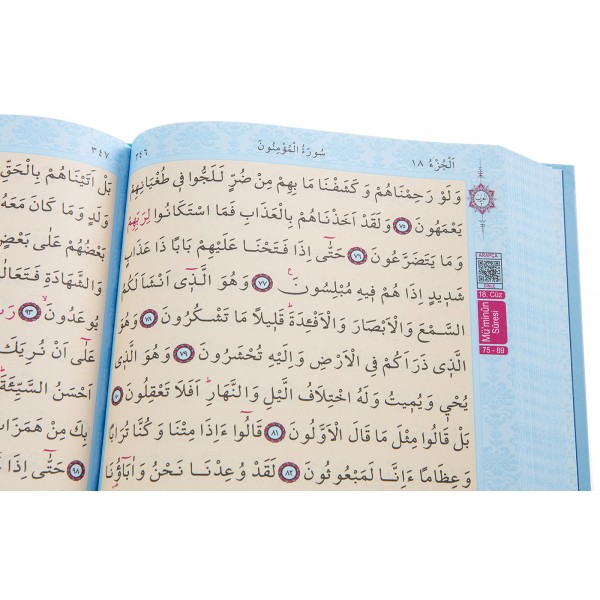 اَلْجُزْءُ ١٨ سُورَةُ الْمُؤْمِنُونَ ٣٤٦
وَلَوْ رَحِمْنَاهُمْ وَكَشَفْنَا مَا بِهِمْ مِنْ ضُرٍّ لَلَجُّوا فِي طُغْيَانِهِمْ
يَعْمَهُونَ ٧٥ وَلَقَدْ اَخَذْنَاهُمْ بِالْعَذَابِ فَمَا اسْتَكَانُوا لِرَبِّهِمْ
وَمَا يَتَضَرَّعُونَ ٧٦ حَتّٰٓى اِذَا فَتَحْنَا عَلَيْهِمْ بَابًا ذَا عَذَابٍ
شَدِيدٍ اِذَا هُمْ فِيهِ مُبْلِسُونَ ٧٧ وَهُوَ الَّذِٓي اَنْشَاَ لَكُمُ
السَّمْعَ وَالْاَبْصَارَ وَالْاَفْـِٔدَةَ قَلِيلًا مَا تَشْكُرُونَ ٧٨ وَهُوَ
الَّذِي ذَرَاَكُمْ فِي الْاَرْضِ وَاِلَيْهِ تُحْشَرُونَ ٧٩ وَهُوَ الَّذِي
يُحْيِ وَيُمِيتُ وَلَهُ اخْتِلَافُ الَّيْلِ وَالنَّهَارِ اَفَلَا تَعْقِلُونَ ٨٠
بَلْ قَالُوا مِثْلَ مَا قَالَ الْاَوَّلُونَ ٨١ قَالُٓوا ءَاِذَا مِتْنَا وَكُنَّا تُرَابًا
وَعِظَامًا ءَاِنَّا لَمَبْعُوثُونَ ٨٢ لَقَدْ وُعِدْنَا نَحْنُ وَاٰبَٓاؤُ۬نَا
18. Cüz
Mü'minûn
Sûresi
75 - 89
٣٤٧
بَلْ اَتَيْنَاهُمْ بِالْحَقِّ
وَلَدٍ وَمَا كَانَ مَعَهُ
بَعْضُهُمْ عَلٰى بَعْضٍ
وَالشَّهَادَةِ فَتَعَالٰى
يُوعَدُونَ ٩٣
عَلٰٓى اَنْ نُرِيَكَ
اَحْسَنُ السَّيِّئَةَ
بِكَ مِنْ هَمَزَاتِ
٩٨ حَتّٰٓى اِذَا